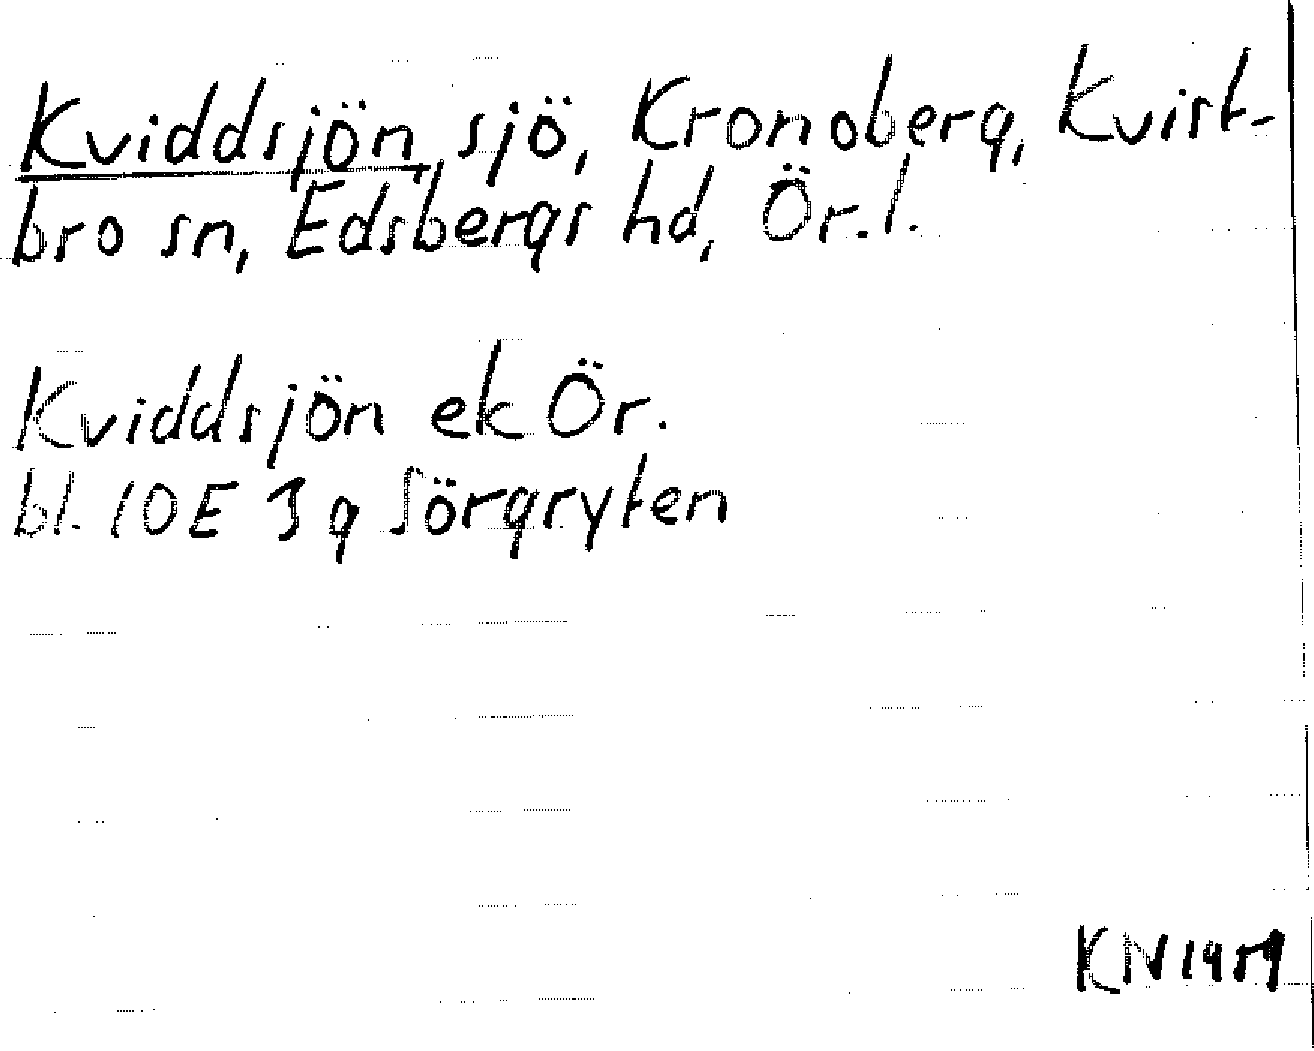 Kviddsjön, sjö, Kronoberg, Kvist-
bro sn, Edsbergs hd, Ör.l.
Kviddsjön ek Ör.
bl. 10E 3 g Sörgryten
KN 1959